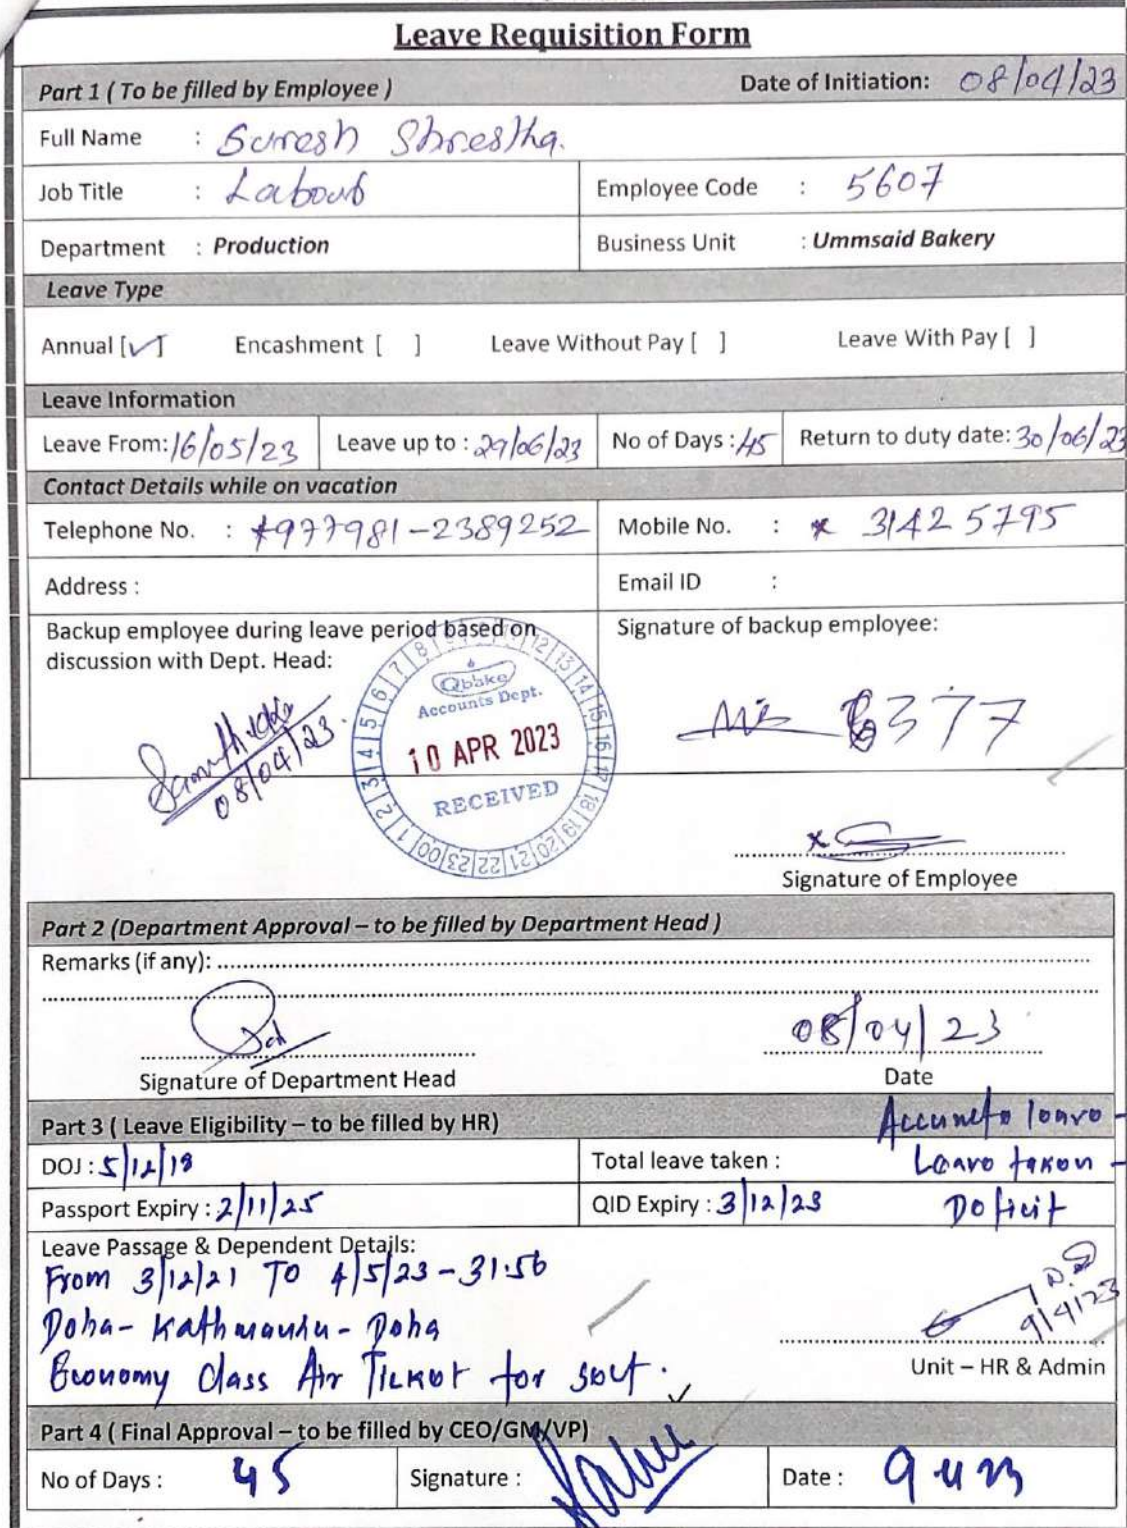 Leave Requisition Form
Part 1 ( To be filled by Employee ) Date of Initiation: 08/04/23
Full Name : Suresh Shrestha.
Job Title : Labour Employee Code : 5607
Department : Production Business Unit : Ummsaid Bakery
Leave Type
Annual [✓] Encashment [ ] Leave Without Pay [ ] Leave With Pay [ ]
Leave Information
Leave From: 16/05/23 Leave up to : 29/06/23 No of Days : 45 Return to duty date: 30/06/23
Contact Details while on vacation
Telephone No. : +977981-2389252 Mobile No. : * 3142 5795
Address : Email ID :
Backup employee during leave period based on Signature of backup employee:
discussion with Dept. Head:
08/04/23. 6377
Qbake
Accounts Dept.
10 APR 2023
RECEIVED
00 1 2 3 4 5 6 7 8 12 13 14 15 16 17 18 19 20 21 22 23
x
Signature of Employee
Part 2 (Department Approval – to be filled by Department Head )
Remarks (if any):
08/04/23
Signature of Department Head Date
Part 3 ( Leave Eligibility – to be filled by HR)
DOJ : 5/12/18 Total leave taken : Leave taken -
Passport Expiry : 2/11/25 QID Expiry : 3/12/23 Deficit
Leave Passage & Dependent Details:
From 3/12/21 TO 4/5/23 - 31.56
Doha - Kathmandu - Doha 9/4/23
Economy Class Air Ticket for self.
Unit – HR & Admin
Part 4 ( Final Approval – to be filled by CEO/GM/VP)
No of Days : 45 Signature : Date : 9 4 23